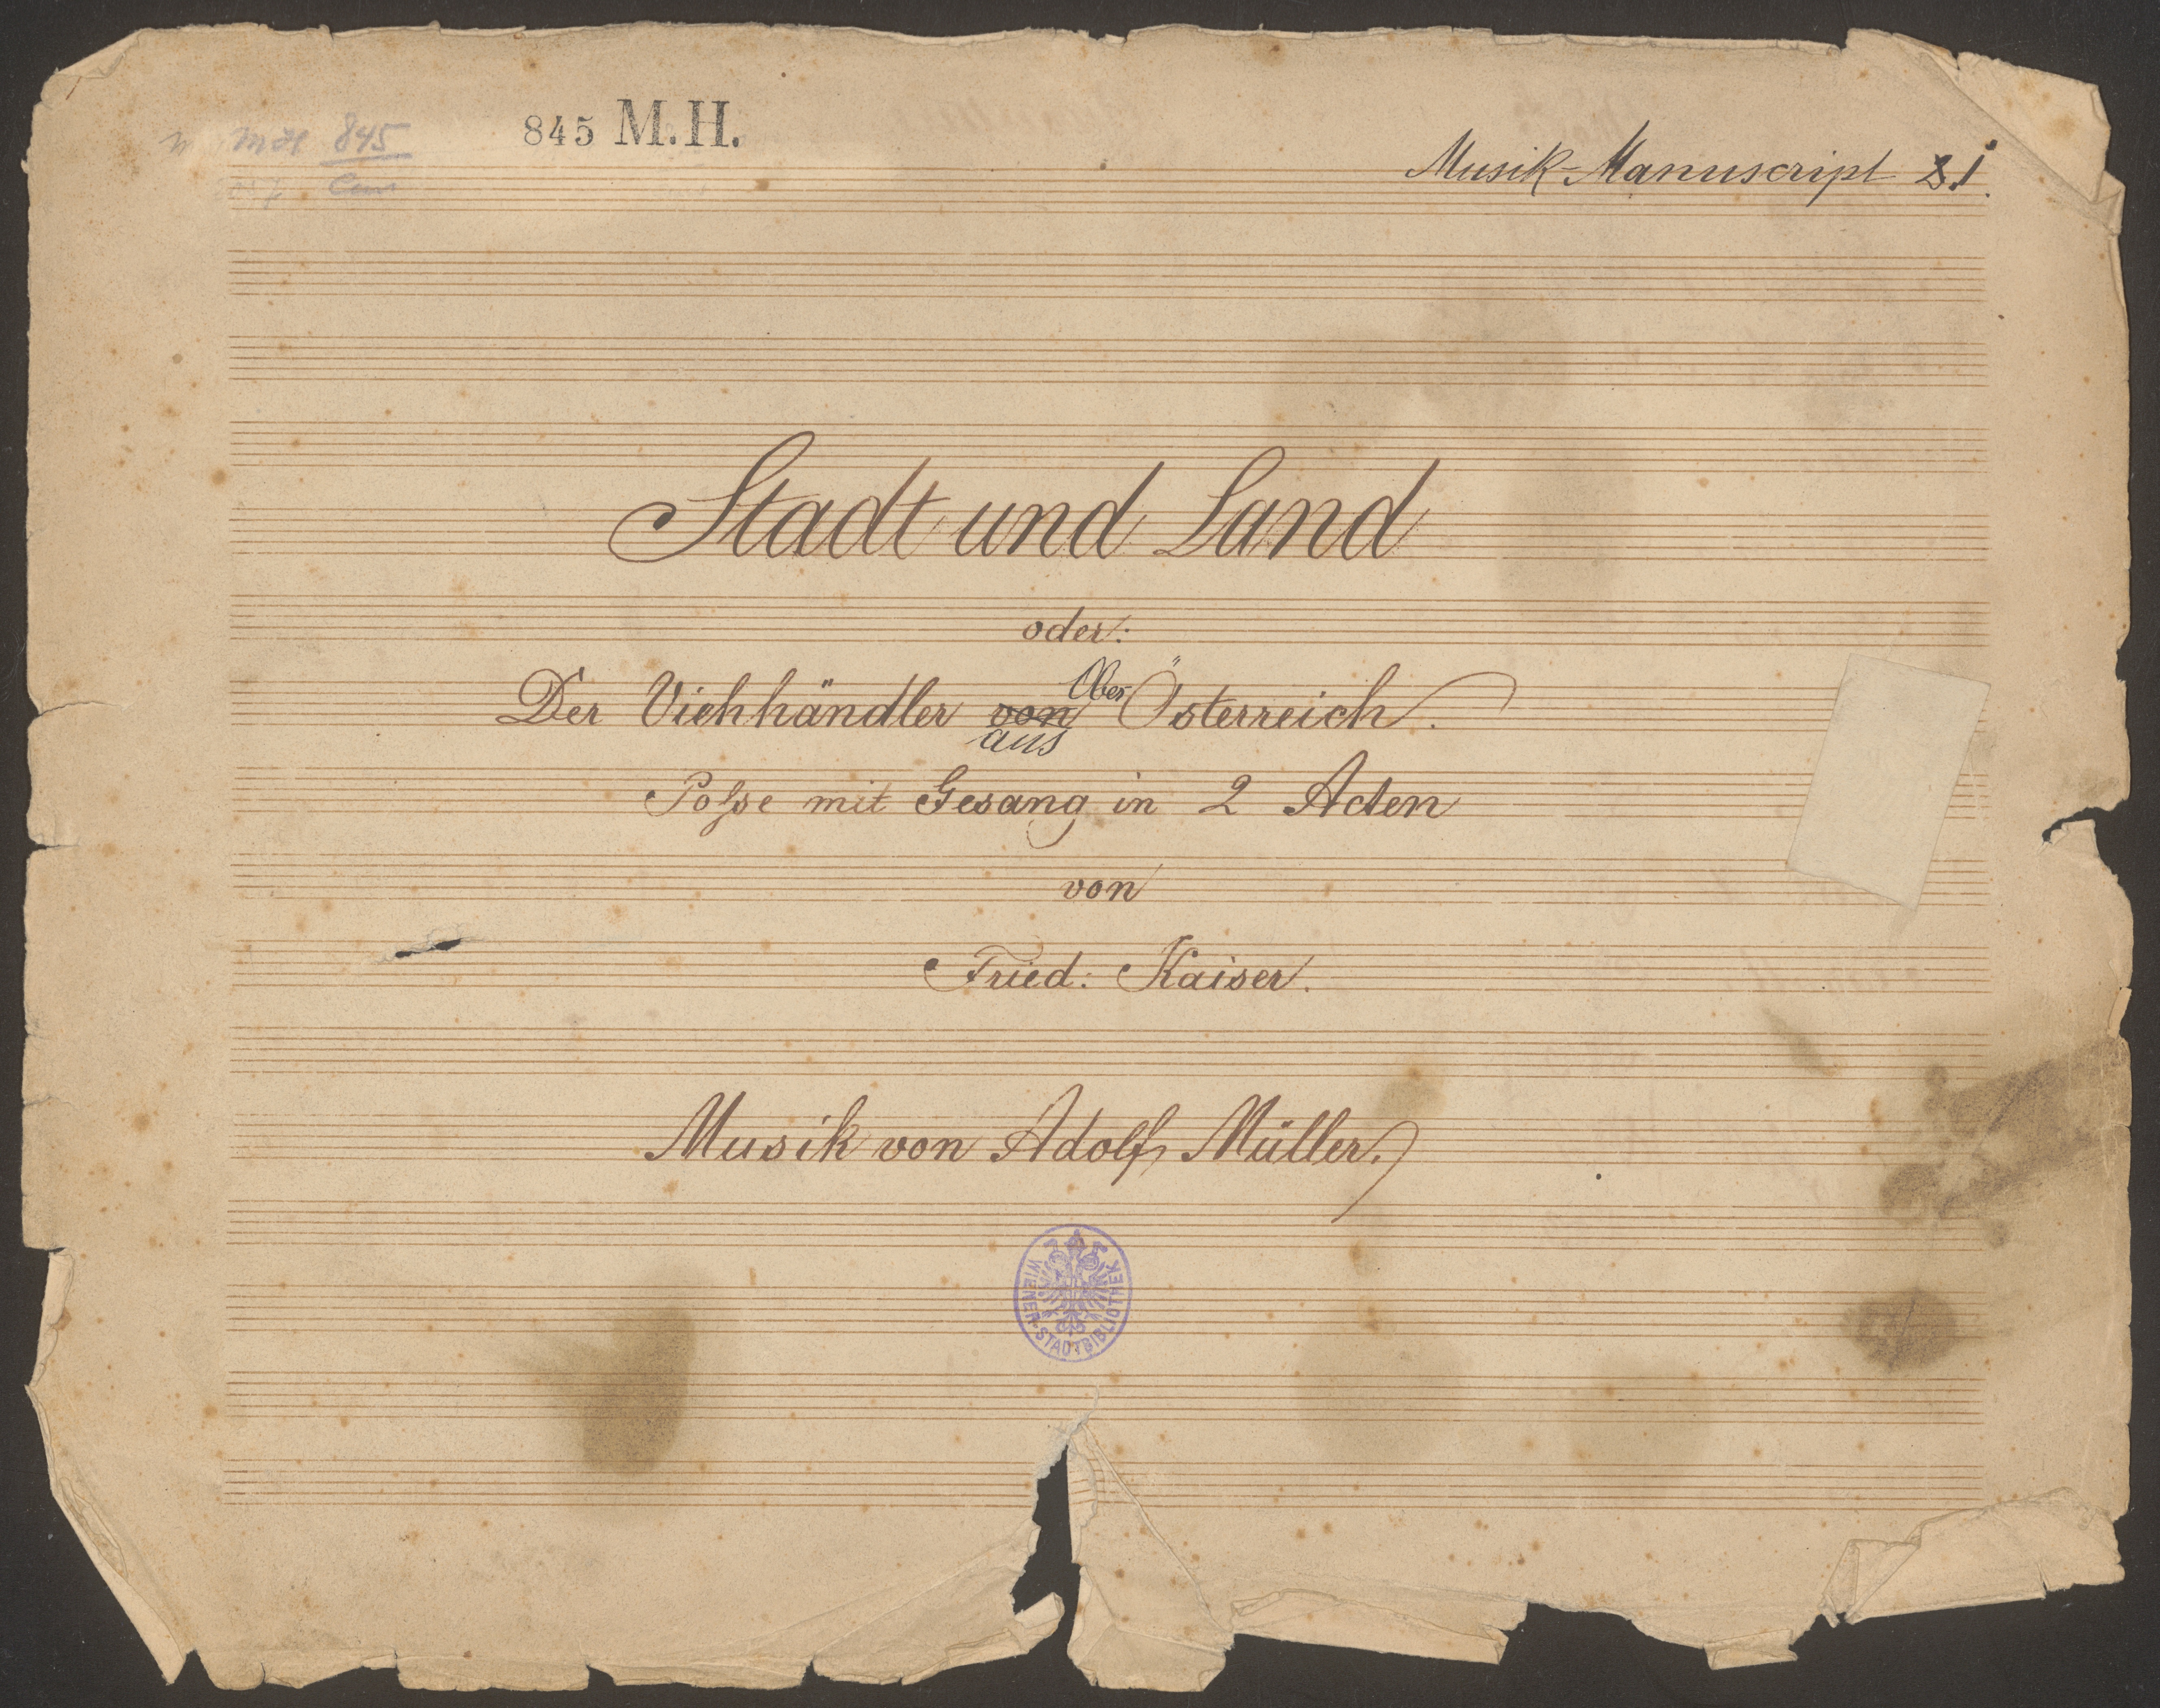 845 M.H.
845
Musik-Manuscript 1.
Stadt und Land
oder:
Der Viehhändler von aus Ober Österreich.
Posse mit Gesang in 2 Acten
von
Fried: Kaiser.
Musik von Adolf Müller.
WIENER STADTBIBLIOTHEK